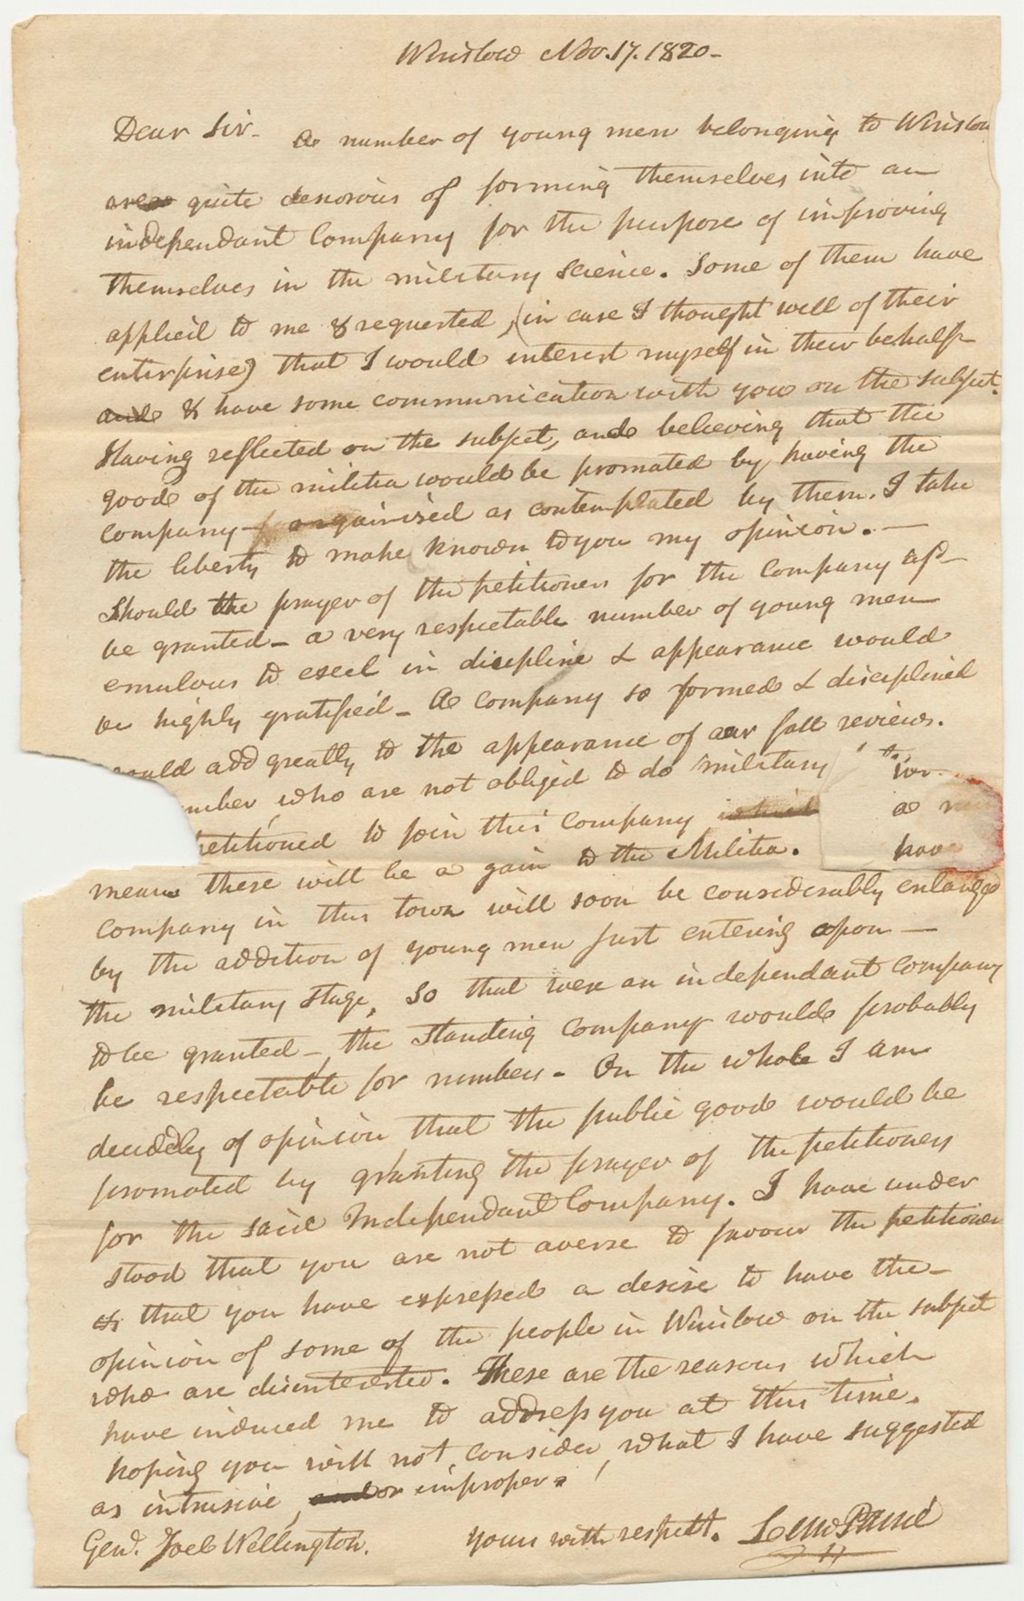 Winslow Nov. 17. 1820-
Dear Sir- A number of young men belonging to Winslow
are quite desirous of forming themselves into an
independant Company for the purpose of improving
themselves in the military science. Some of them have
applied to me & requested, (in case I thought well of their
enterprise) that I would interest myself in their behalf-
and & have some communication with you on the subject.
Having reflected on the subject, and believing that the
good of the militia would be promoted by having the
company organized as contemplated by them. I take
the liberty to make known to you my opinion. —
Should the prayer of the petitioners for the Company afsd
be granted - a very respectable number of young men
emulous to excel in discipline & appearance would
be highly gratified - A company so formed & disciplined
would add greatly to the appearance of our fall reviews.
umber, who are not obliged to do military
etitioned to join this Company which
means there will be a gain to the Militia.
a
have
company in this town will soon be considerably enlarged
by the addition of young men just entering upon —
the military stage, so that were an independant company
to be granted - the standing Company would probably
be respectable for numbers - On the whole I am
decidedly of opinion that the public good would be
promoted by granting the prayer of the petitioners
for the said Independant Company. I have under
stood that you are not averse to favour the petitioners
& that you have expressed a desire to have the -
opinion of some of the people in Winslow on the subject
who are disinterested. These are the reasons which
have induced me to address you at this time.
hoping you will not consider, what I have suggested
as intrusive, and or improper.
Genl. Joel Wellington.
Yours with respect. Lem Paine